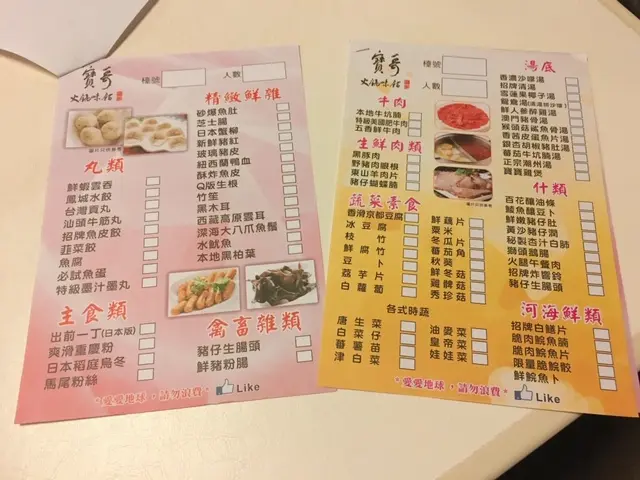 寶哥
火鍋味粘
檯號
人數
丸類
鮮蝦雲吞
鳳城水餃
台灣貢丸
汕頭牛筋丸
招牌魚皮餃
韮菜餃
魚腐
必試魚蛋
特級墨汁墨丸
主食類
出前一丁(日本版)
爽滑重慶粉
日本稻庭烏冬
馬尾粉絲
精緻鮮雜
砂爆魚肚
芝士腸
日本蟹柳
新鮮豬紅
玻璃豬皮
紐西蘭鴨血
酥炸魚皮
Q版生根
竹笙
黑木耳
西藏高原雲耳
深海大八爪魚鬚
水魷魚
本地黑柏葉
禽畜雜類
豬仔生腸頭
鮮豬粉腸
愛愛地球，請勿浪費。
Like
寶哥
火鍋味粘
檯號
人數
牛肉
本地牛坑腩
特級美國肥牛肉
五香鮮牛肉
生鮮肉類
黑豚肉
野豬肉
東山羊肉片
豬仔蝴蝶腩
蔬菜素食
香滑京都豆腐
冰豆腐
枝竹
鮮腐竹
豆卜
荔芋片
白蘿蔔
鮮藕片
粟米
冬瓜片
番茄角
秋葵
鮮冬菇
雞髀菇
秀珍菇
各式時蔬
唐生菜
白菜仔
蕃薯苗
津白菜
油麥菜
皇帝菜
娃娃菜
湯底
香濃沙嗲湯
招牌清湯
雪蓮果椰子湯
鴛鴦湯(清湯拼沙嗲)
鮮人參醉雞湯
澳門豬骨湯
猴頭菇鱷魚骨湯
香茜皮蛋魚片湯
銀杏胡椒豬肚湯
蕃茄牛坑腩湯
正宗潮州湯
寶寶雞煲
什類
百花釀油條
鯪魚釀豆卜
鮮嫩豬肚
黃沙豬仔潤
秘製杏汁白肺
獅頭鵝腸
火腿午餐肉
招牌炸響鈴
豬仔生腸
河海鮮類
招牌白鱔片
脆肉鯇魚腩
脆肉鯇魚片
限量脆鯇骹
鮮鯇魚卜
愛愛地球，請勿浪費。
Like